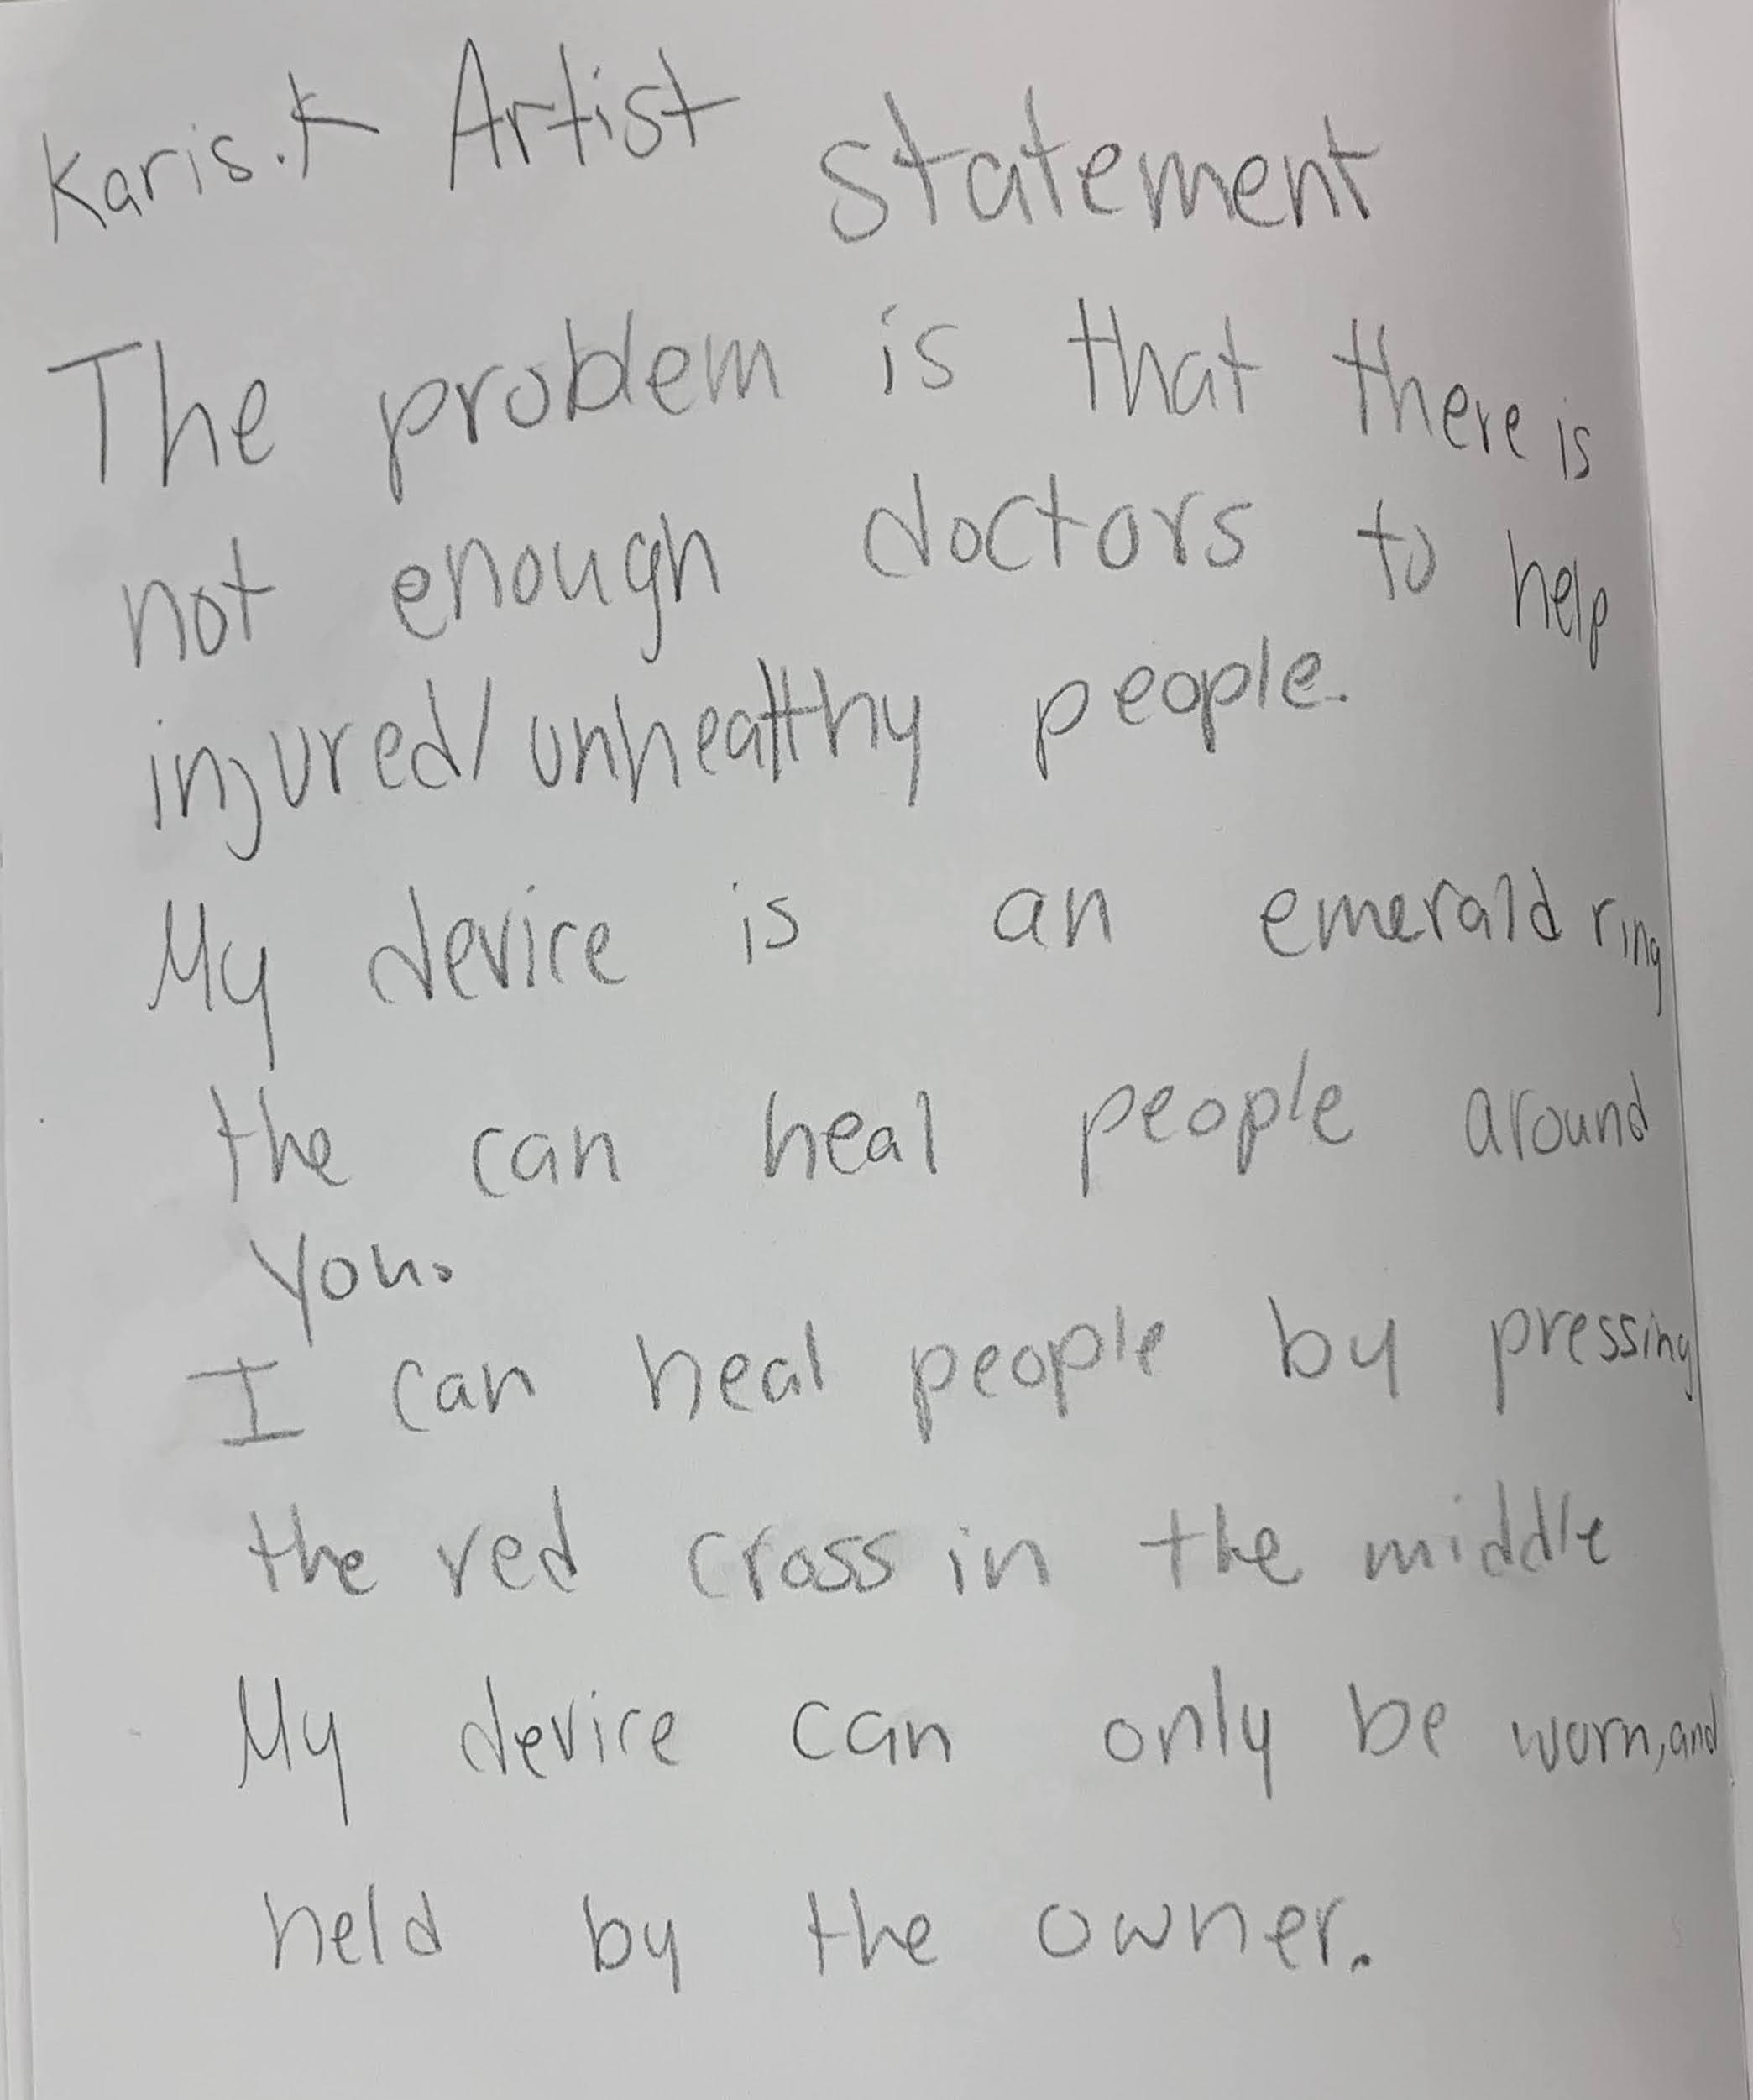 Karis.K Artist statement
The problem is that there is
not enough doctors to help
injured/unhealthy people.
My device is an emerald ring
the can heal people around
you.
I can heal people by pressing
the red cross in the middle
My device can only be worn, and
held by the owner.